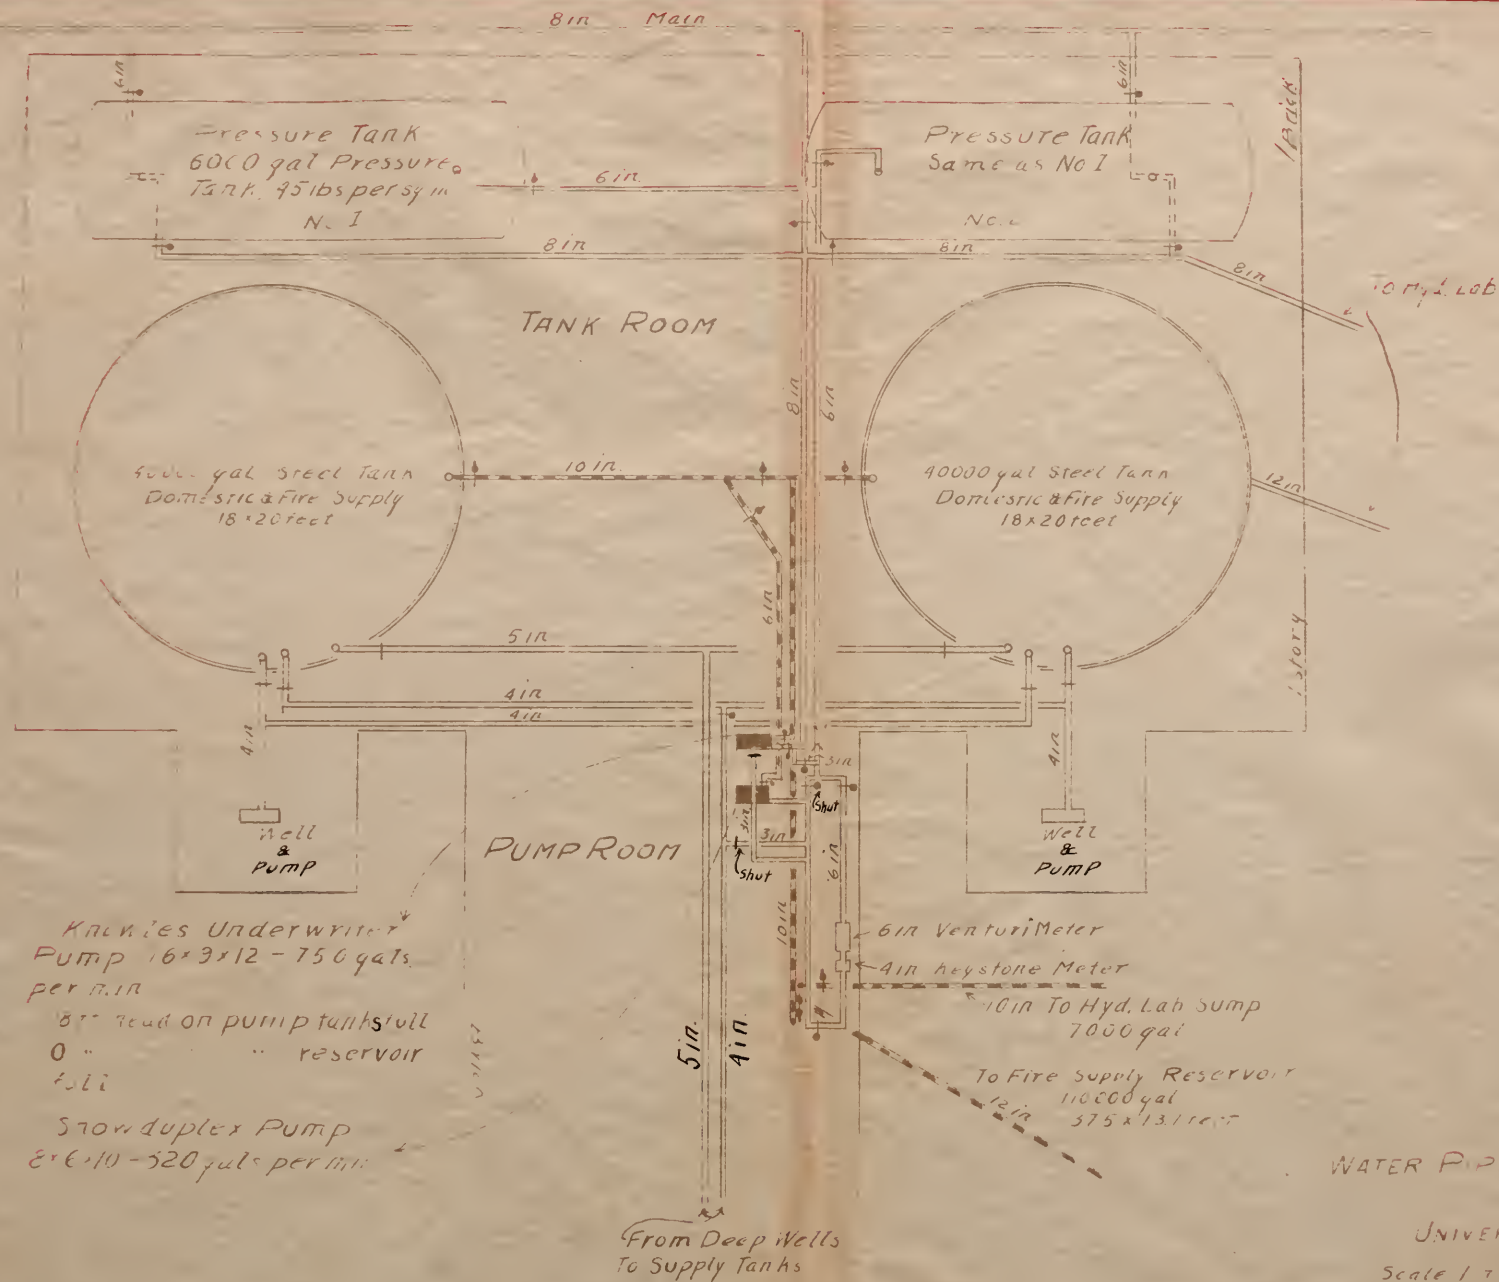 8in Main
6in
6in
1 Brick
Pressure Tank
6000 gal Pressure
Tank, 95 lbs per sq in
N. I
Pressure Tank
Same as No I
No.
6in.
8in
8in
8in
To Hyd. Lab
TANK ROOM
8in
6in
gal Steel Tank
Domestic & Fire Supply
18×20 feet
10in.
40000 gal Steel Tank
Domestic & Fire Supply
18×20 feet
12in
6in
5in
story
4in
4in
4in
4in
3in
Shut
Well
&
Pump
PUMP ROOM
3in
3in
Shut
6in
Well
&
Pump
Knowles Underwriter
Pump 16×9×12 - 750 gals
per min
head on pump tanks full
0 " " reservoir
full
Snow duplex Pump
8×6×10 - 320 gals per min
Brick
10in
6in Venturi Meter
4in Keystone Meter
10in To Hyd. Lab Sump
7000 gal
5in.
4in.
To Fire Supply Reservoir
110000 gal
12in
37.5 x 13.1 feet
From Deep Wells
To Supply Tanks
WATER PIP
UNIVER
Scale 1